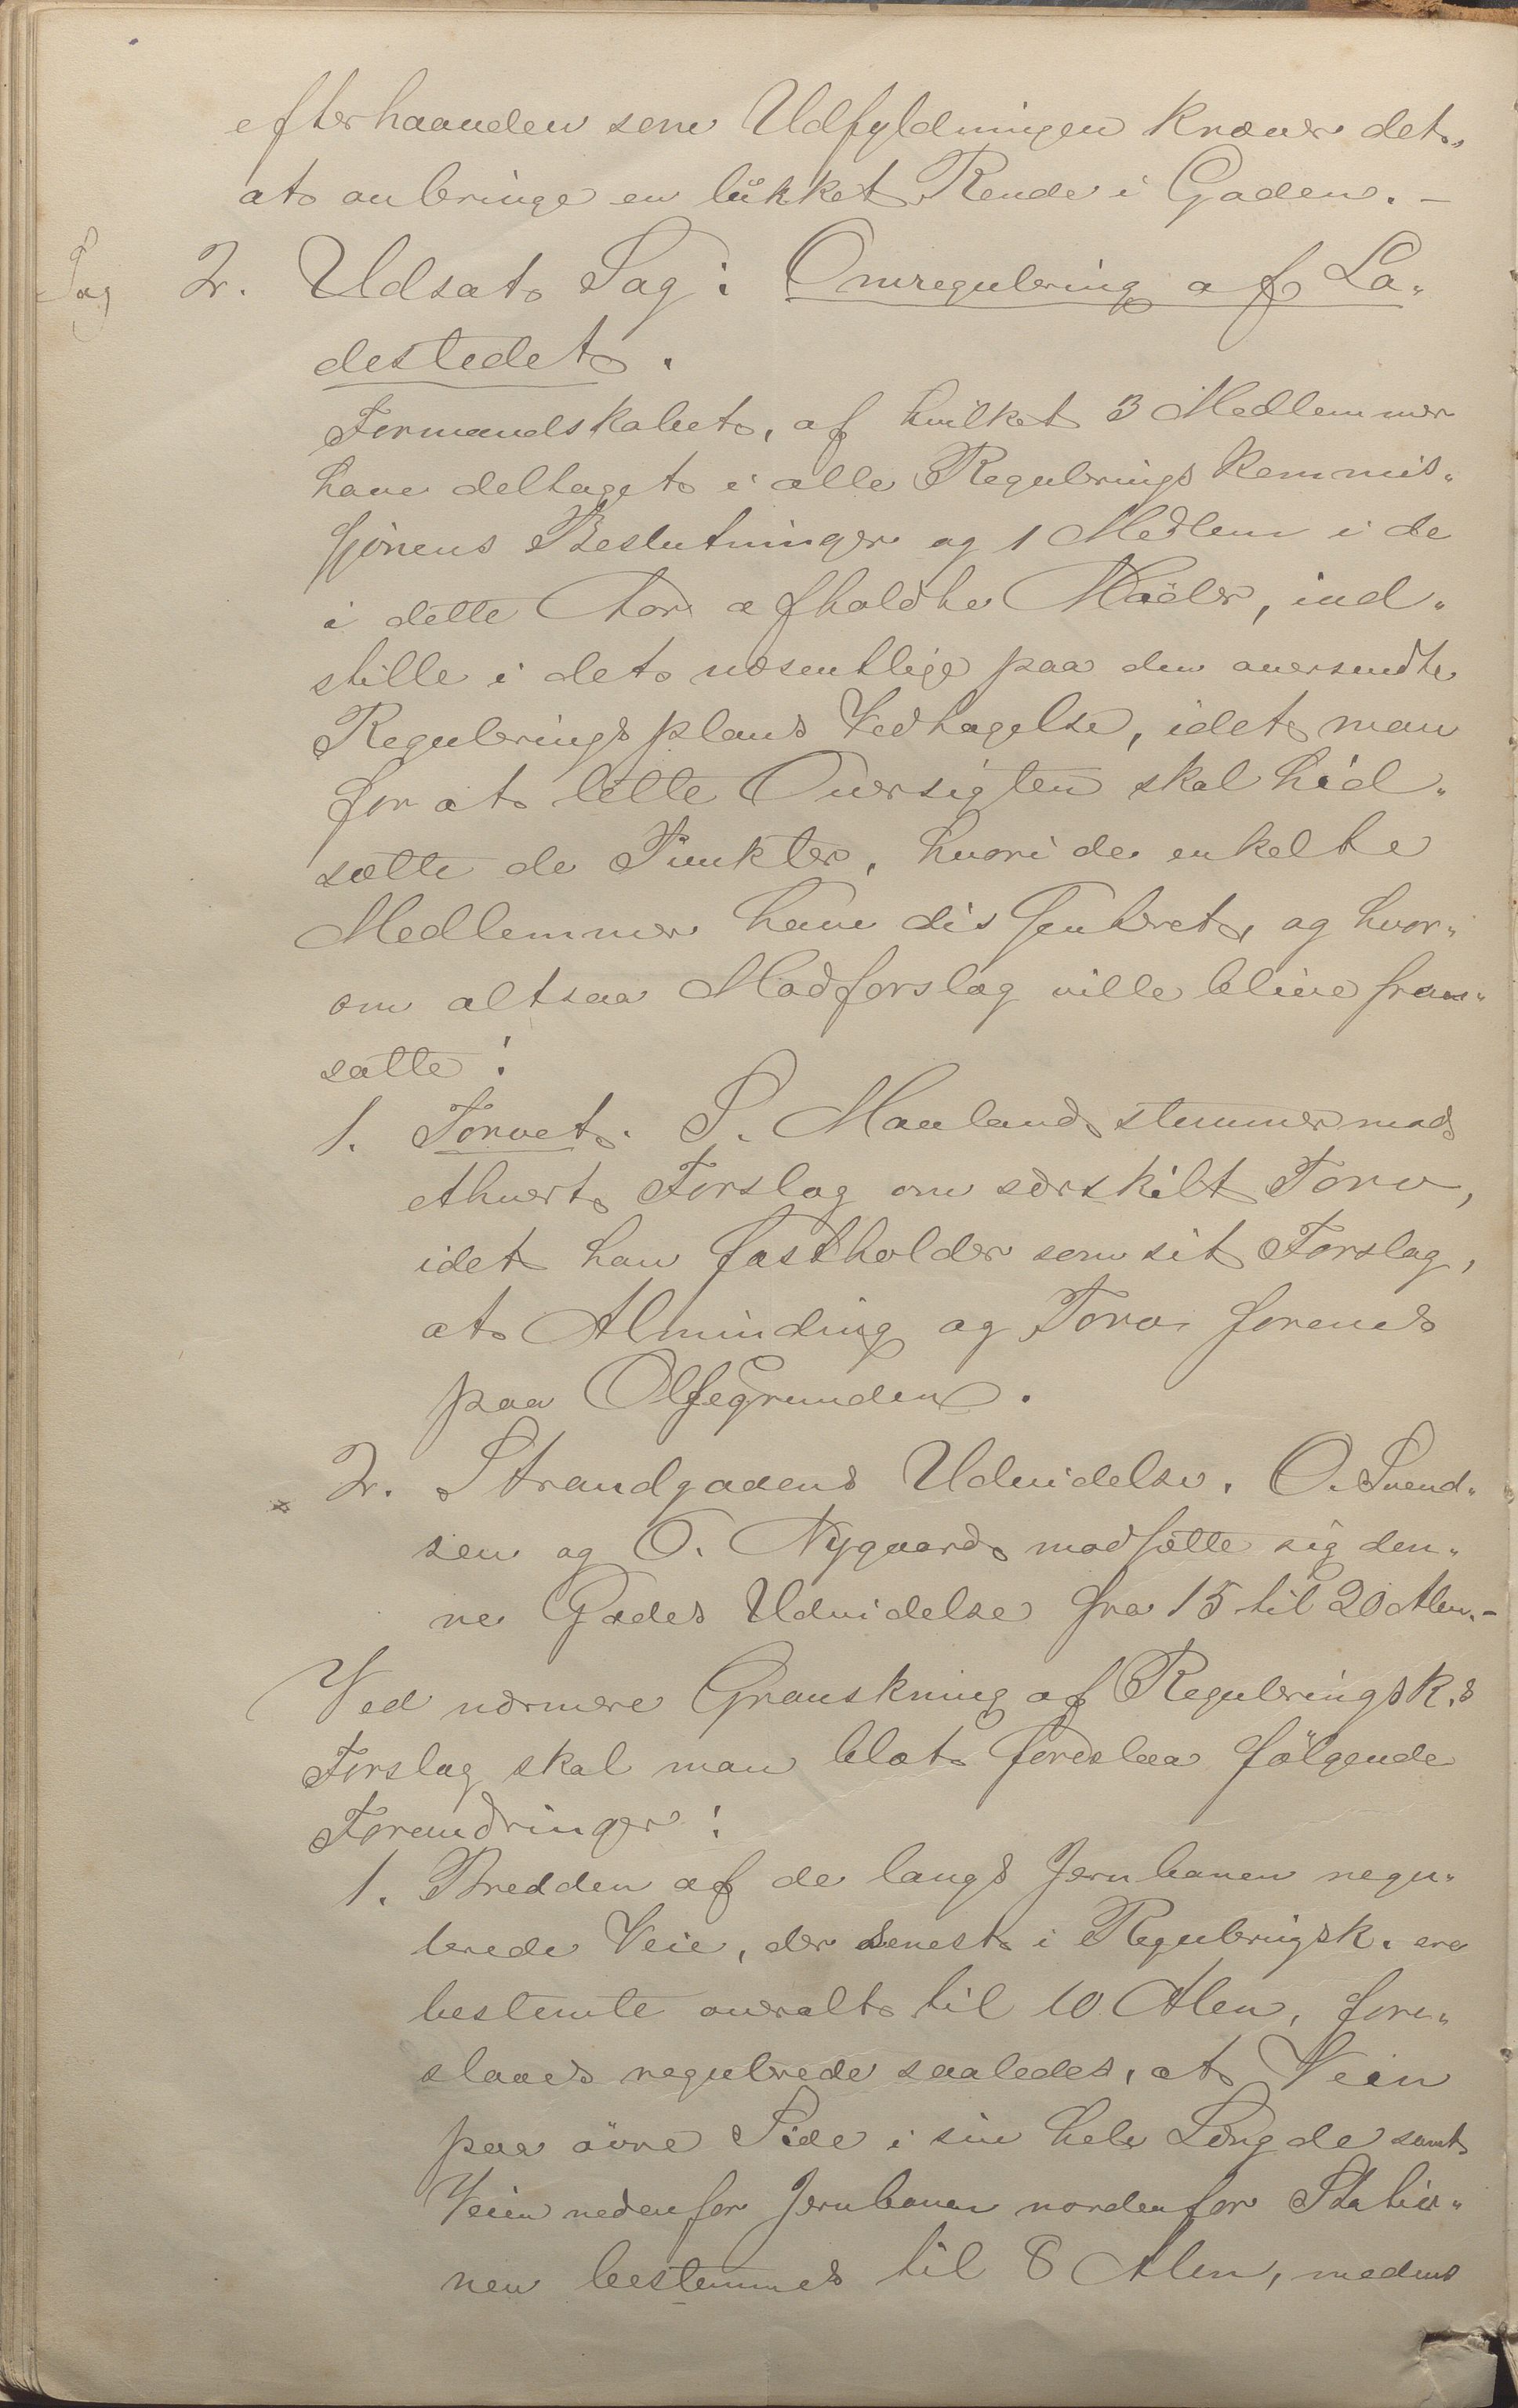 efterhaanden som Udfyldningen kræver det,
at anbringe en lükket Rende i Gaden. -
Sag 2. Udsat Sag: Omregulering af La-
destedet.
Formandskabet, af hvilket 3 Medlemmer
have deltaget i alle Regulerings Kommis-
sjonens Beslutninger og 1 Medlem i de
i dette Aar afholdte Möder, ind-
stille i det væsentlige paa den oversendte
Reguleringsplans Vedtagelse, idet man
for at lette Oversigten skal hid-
sætte de Punkter, hvori de enkelte
Medlemmer have dissenteret, og hvor-
om altsaa Modforslag ville blive frem-
satte:
1. Torvet. S. Maaland stemmer mod
ethvert Forslag om særskilt Torv,
idet han fastholder som sit Forslag,
at Alminding og Torv forenes
paa Olsegrunden.
2. Strandgadens Udvidelse. O. Svend-
sen og O. Nygaard modsætte sig den-
ne Gades Udvidelse fra 15 til 20 Alen.-
Ved nærmere Granskning af Reguleringsk.s
Forslag skal man blot foreslaa fölgende
Forandringer:
1. Bredden af de langs Jernbanen regu-
lerede Veie, der senest i Reguleringsk. ere
bestemte overalt til 10 Alen, fore-
slaaes regulerede saaledes, at Veien
paa övre Side i sin hele Længde samt
Veien nedenfor Jernbanen nordenfor Statio-
nen bestemmes til 8 Alen, medens